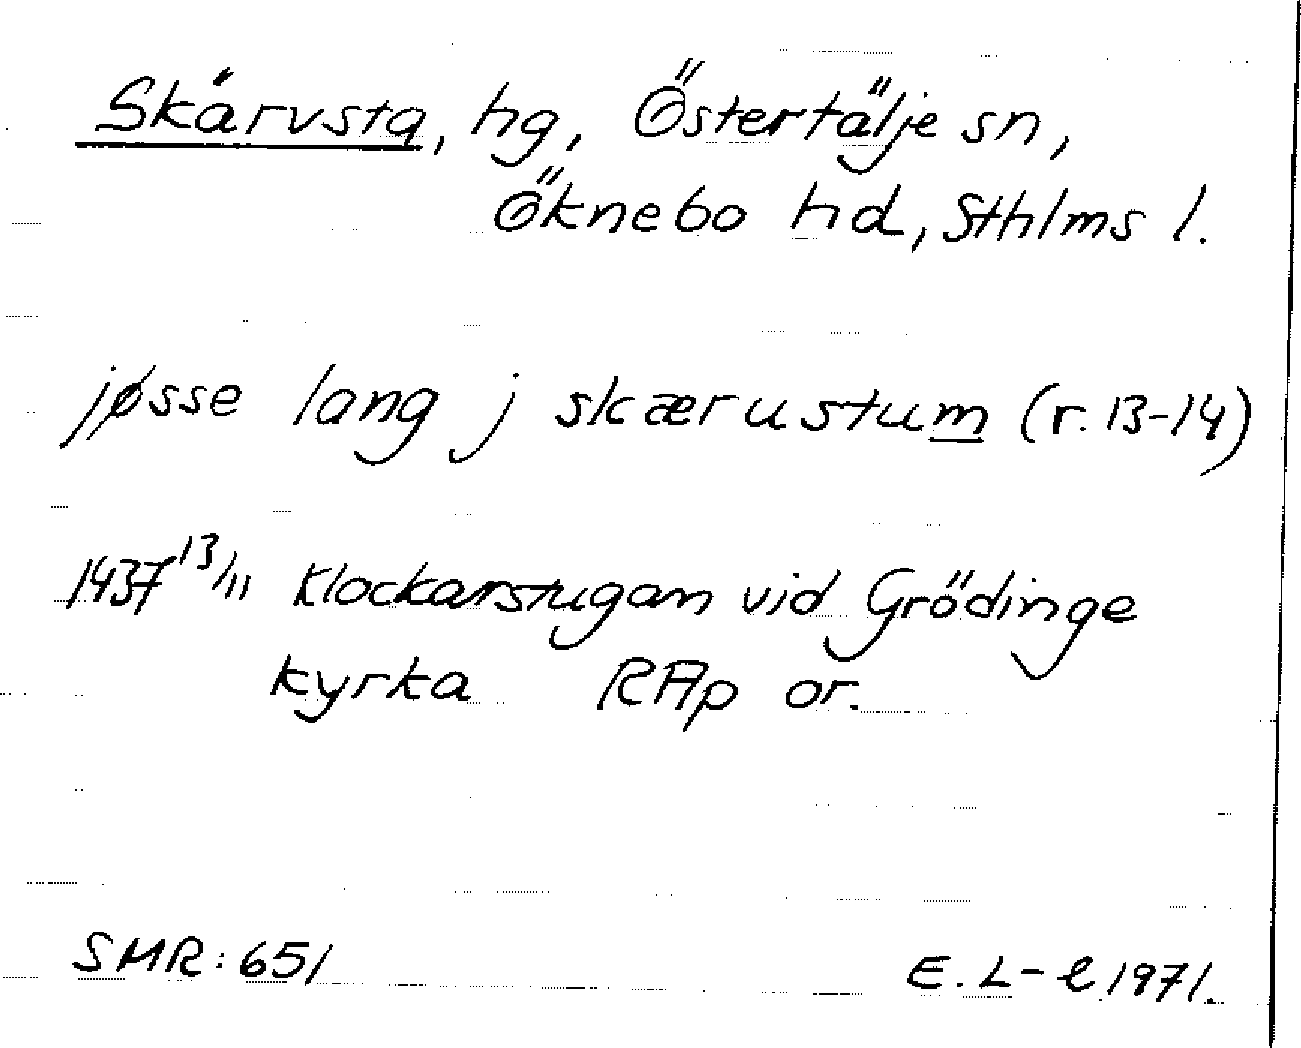 Skärvsta, hg, Östertälje sn,
Öknebo hd, Sthlms l.
jøsse lang j skærustum (r. 13-14)
1437 13/11 Klockarstugan vid Grödinge
kyrka RAp or.
SMR: 651
E. L-l 1971.